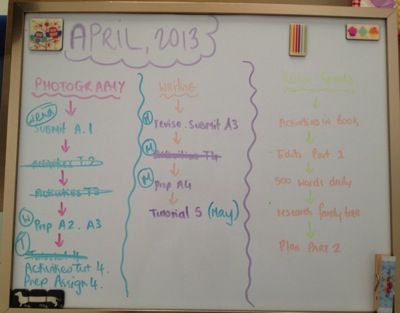 APRIL, 2013
PHOTOGRAPHY
Submit A.1
Activities T.2
Activities T3
W
Prep A2. A3
T
Tutorial 4
Activities Tut 4.
Prep Assign 4.
WRITING
revise. Submit A3
M
Activities T4
M
Prep A4
Tutorial 5 (May)
Activities in Book
Edits Part 1
500 words daily
research family tree
Plan Part 2